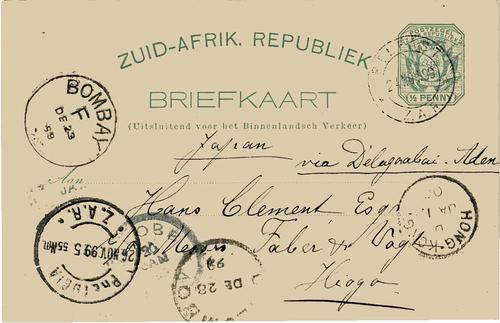 ZUID-AFRIK. REPUBLIEK
½ PENNY
Z.A.R.
BRIEFKAART
(Uitsluitend voor het Binnenlandsch Verkeer)
BOMBAY
F
DE 23
99
Japan
via Delagoabai-Aden
Aan
Hans Clement Esqr
Messrs Faber & Vogt
Hiogo
HONG-KO
Z.A.R.
26 NOV. 99 5 55 Nm.
PRETORIA
KOBE
20
JAN
DE 28
99